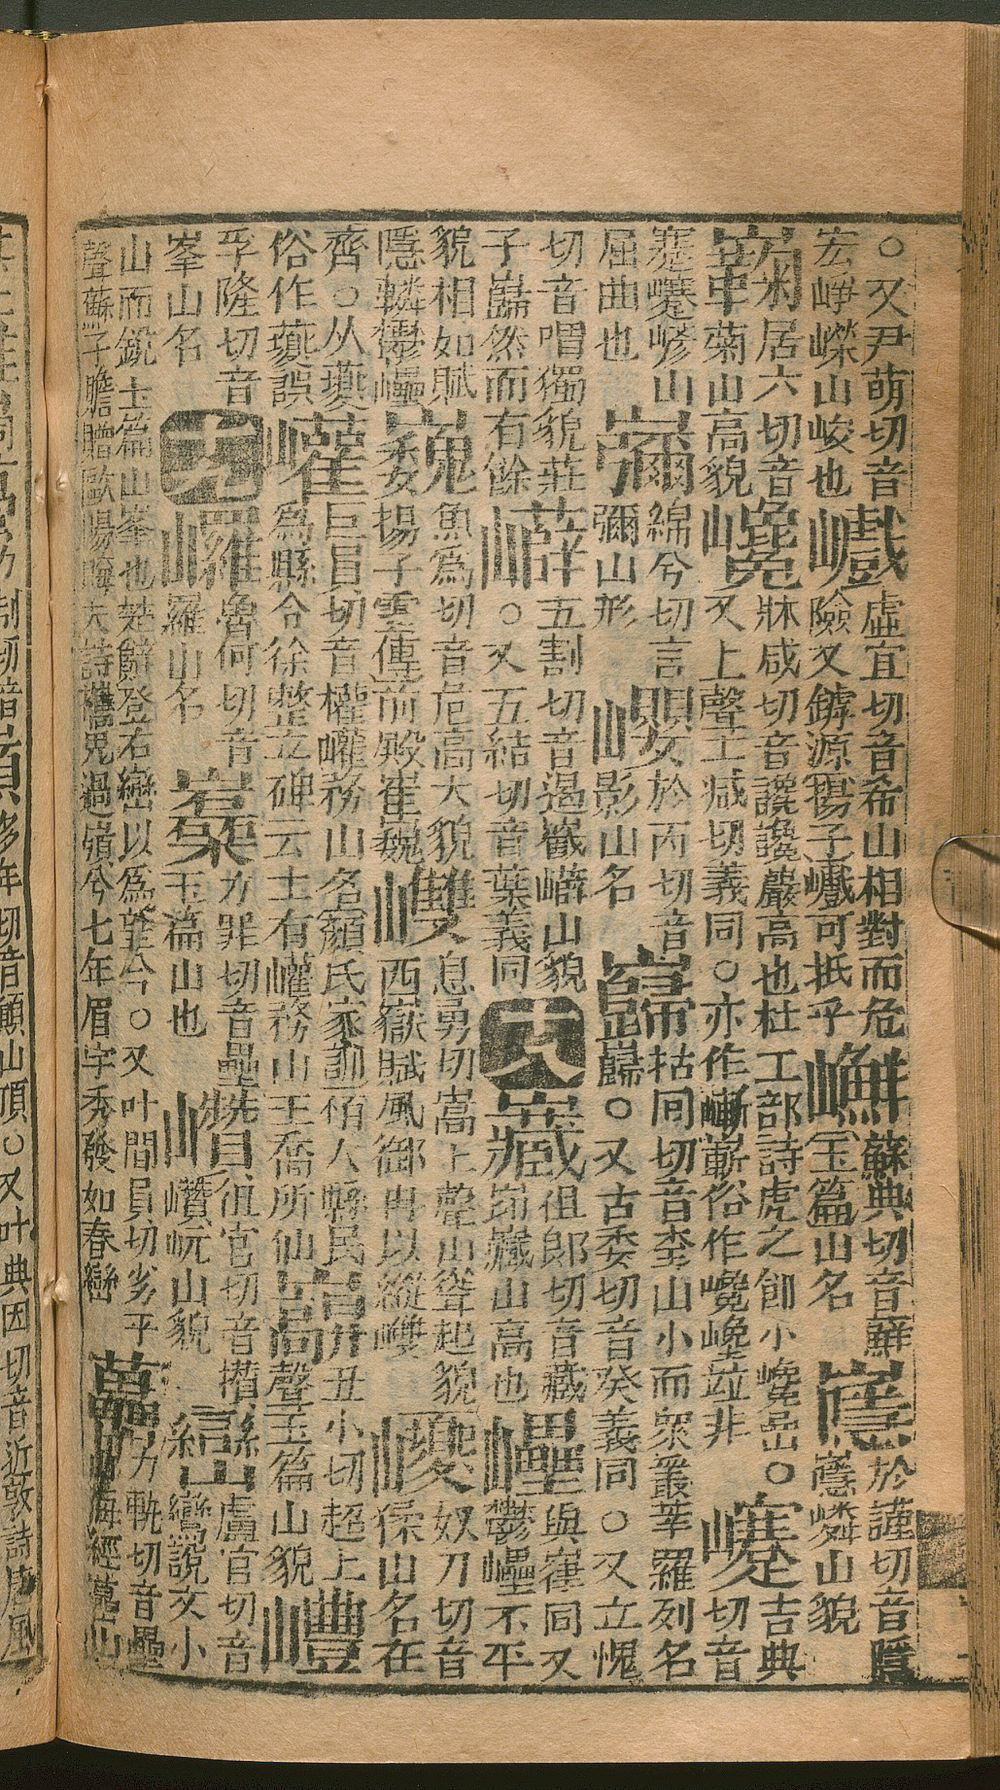 ○又尹萌切音宏崢嶸山峻也
巇虛宜切音希山相對而危險又鏬源揚子巇可抵乎
玉篇山名蘇典切音蘚
嶾於謹切音隱嶾嶙山貌
居六切音菊山高貌
巉牀咸切音讒巉巖高也杜工部詩虎之飢小巉嵒○又上聲士減切義同○亦作嶃嶄俗作竝非
吉典切音蹇嵾山屈曲也
綿兮切言彌山形
巊於丙切音影山名
巋枯回切音奎山小而衆叢萃羅列名巋○又古委切音癸義同○又立愧切音喟獨貌莊子巋然而有餘
五割切音遏巀嶭山貌○又五結切音葉義同
十八
徂郎切音藏山高也
與崔同又鬱不平貌相如賦隱轔鬱
巍魚為切音危高大貌揚子雲傳前殿崔巍
息勇切嵩上聲山聳起貌西嶽賦風御冉以縱
巎奴刀切音猱山名在齊○从夔俗作蘷誤
巏巨員切音權巏務山名顏氏家訓栢人縣民為縣令徐整立碑云土有巏務山王喬所仙
丑小切超上聲玉篇山貌
孚隆切音峯山名
十九
魯何切音羅山名
力罪切音壘玉篇山也
巑徂官切音攢巑岏山貌
巒盧官切音鸞說文小山而銳玉篇山峯也楚辭登石巒以為望兮○又叶閭員切劣平聲蘇子瞻贈歐陽晦夫詩過嶺兮七年眉宇秀發如春巒
力軌切音壘海經山
切音顛山頂○又叶典因切音近敦詩唐風